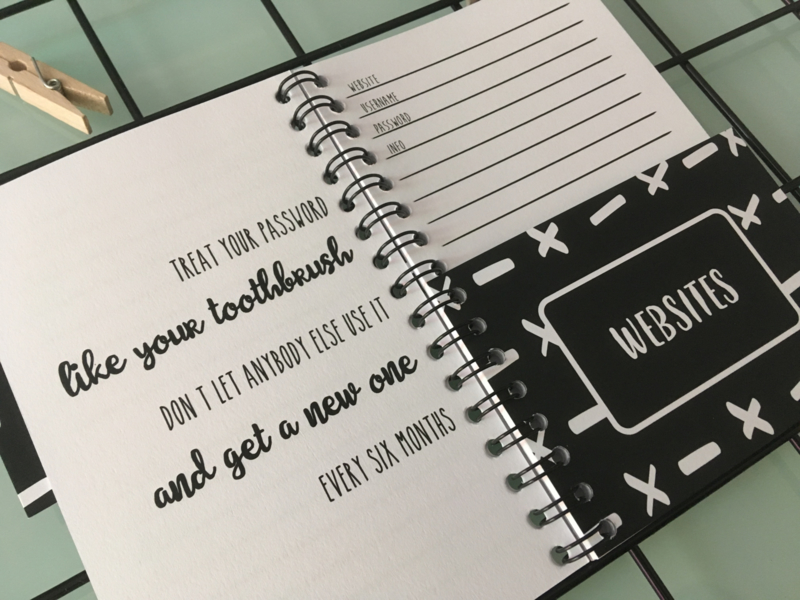 TREAT YOUR PASSWORD
like your toothbrush
DON T LET ANYBODY ELSE USE IT
and get a new one
EVERY SIX MONTHS
WEBSITE
USERNAME
PASSWORD
INFO
WEBSITES